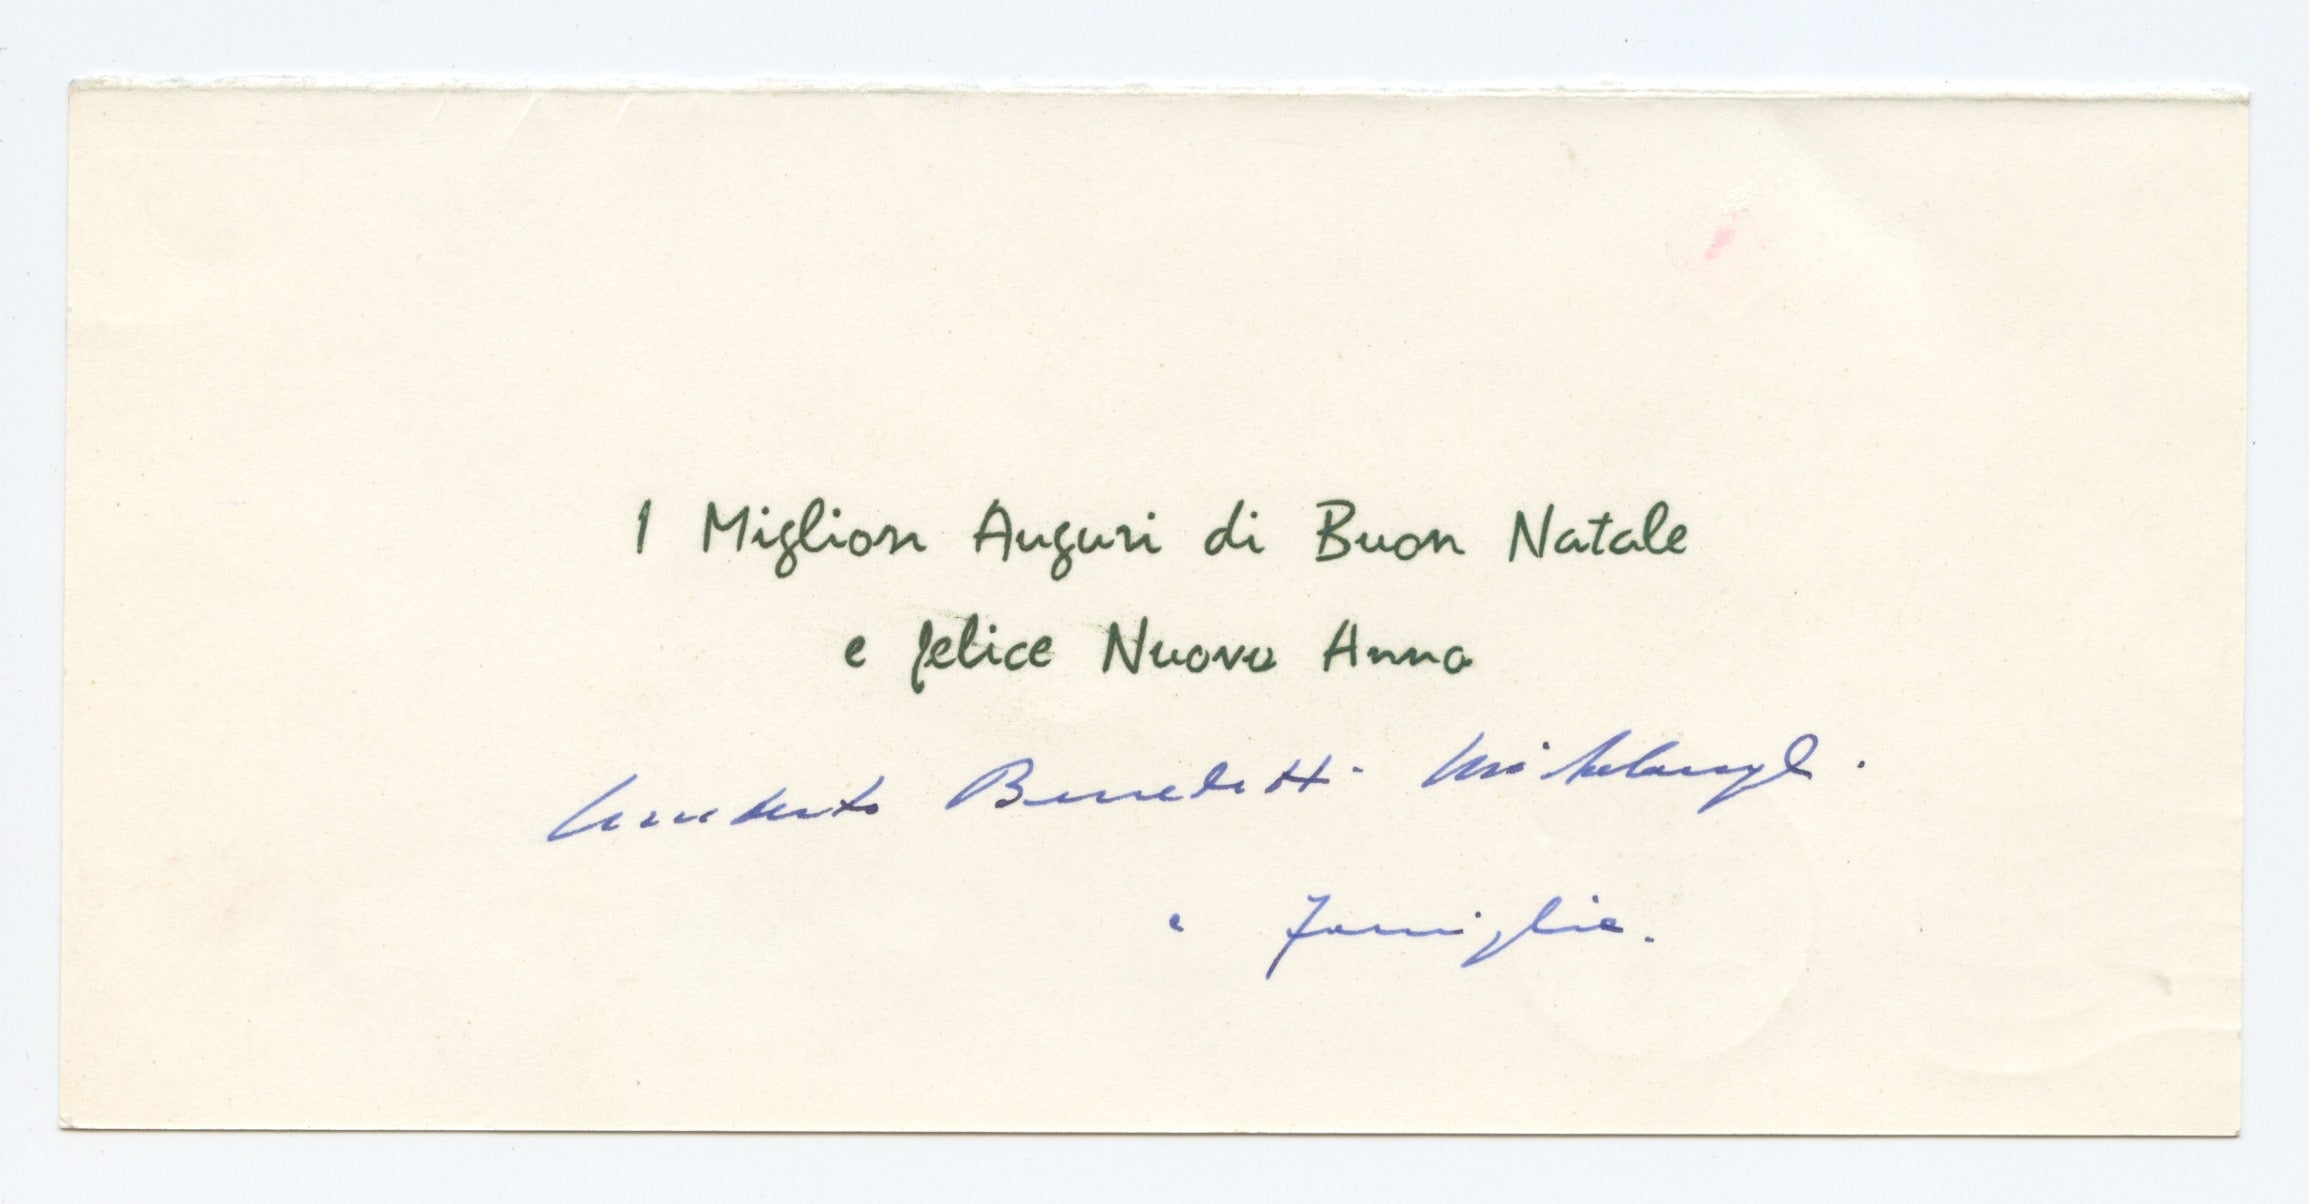 I Migliori Auguri di Buon Natale
e felice Nuovo Anno
Umberto Benedetti Michelangeli.
e famiglia.